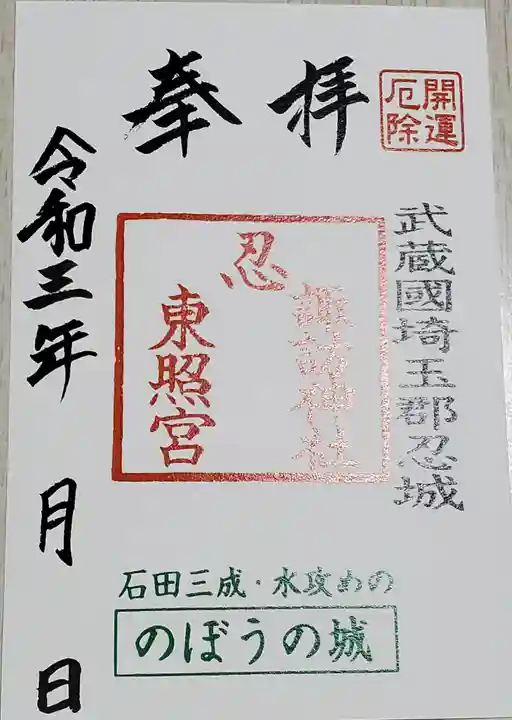 開運
厄除
奉拝
武蔵國埼玉郡忍城
忍
諏訪神社
東照宮
石田三成・水攻めの
のぼうの城
令和三年 月 日